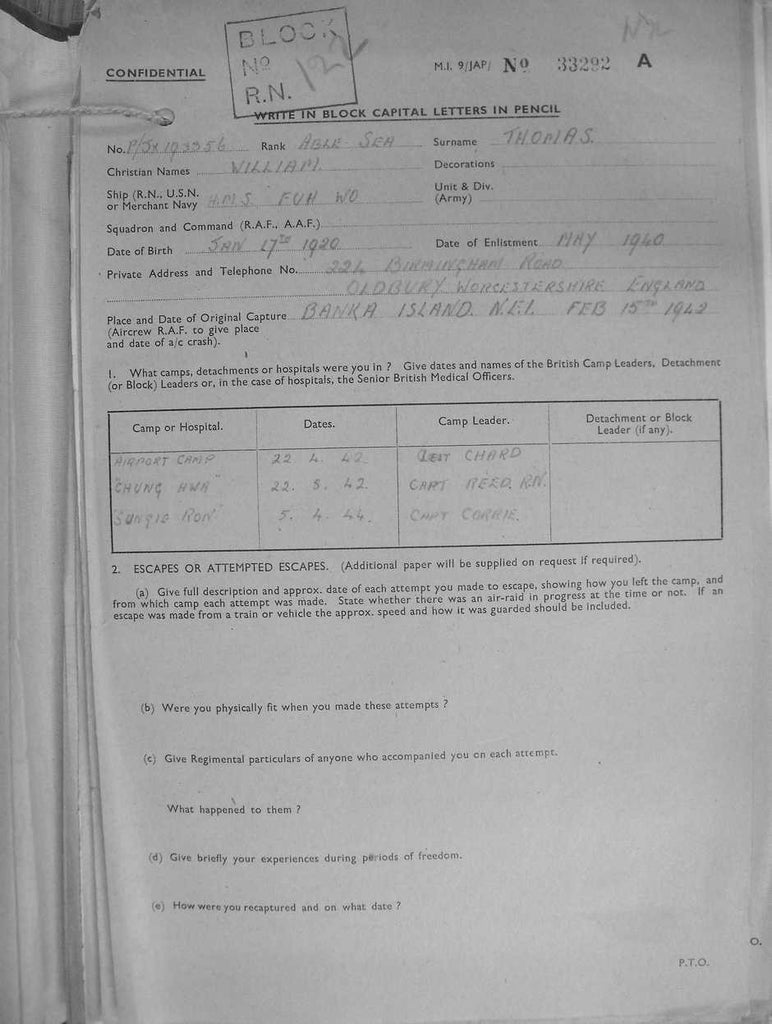 BLOCK
No 12
R.N.
CONFIDENTIAL
M.I. 9/JAP/ No 33292 A
WRITE IN BLOCK CAPITAL LETTERS IN PENCIL
No. P/JX 193356 Rank ABLE SEA Surname THOMAS.
Christian Names WILLIAM. Decorations
Ship (R.N., U.S.N. or Merchant Navy H.M.S. FUH WO Unit & Div. (Army)
Squadron and Command (R.A.F., A.A.F.)
Date of Birth JAN 17TH 1920 Date of Enlistment MAY 1940
Private Address and Telephone No. 224 BIRMINGHAM ROAD
OLDBURY WORCESTERSHIRE ENGLAND
Place and Date of Original Capture BANKA ISLAND. N.E.I. FEB 15TH 1942
(Aircrew R.A.F. to give place
and date of a/c crash).
1. What camps, detachments or hospitals were you in ? Give dates and names of the British Camp Leaders, Detachment
(or Block) Leaders or, in the case of hospitals, the Senior British Medical Officers.
Camp or Hospital. Dates. Camp Leader. Detachment or Block Leader (if any).
AIRPORT CAMP 22 4. 42. CHARD
"CHUNG HWA" 22. 5. 42. CAPT REED. RN.
"SUNGIE RON" 5. 4. 44. CAPT CORRIE.
2. ESCAPES OR ATTEMPTED ESCAPES. (Additional paper will be supplied on request if required).
(a) Give full description and approx. date of each attempt you made to escape, showing how you left the camp, and
from which camp each attempt was made. State whether there was an air-raid in progress at the time or not. If an
escape was made from a train or vehicle the approx. speed and how it was guarded should be included.
(b) Were you physically fit when you made these attempts ?
(c) Give Regimental particulars of anyone who accompanied you on each attempt.
What happened to them ?
(d) Give briefly your experiences during periods of freedom.
(e) How were you recaptured and on what date ?
O.
P.T.O.